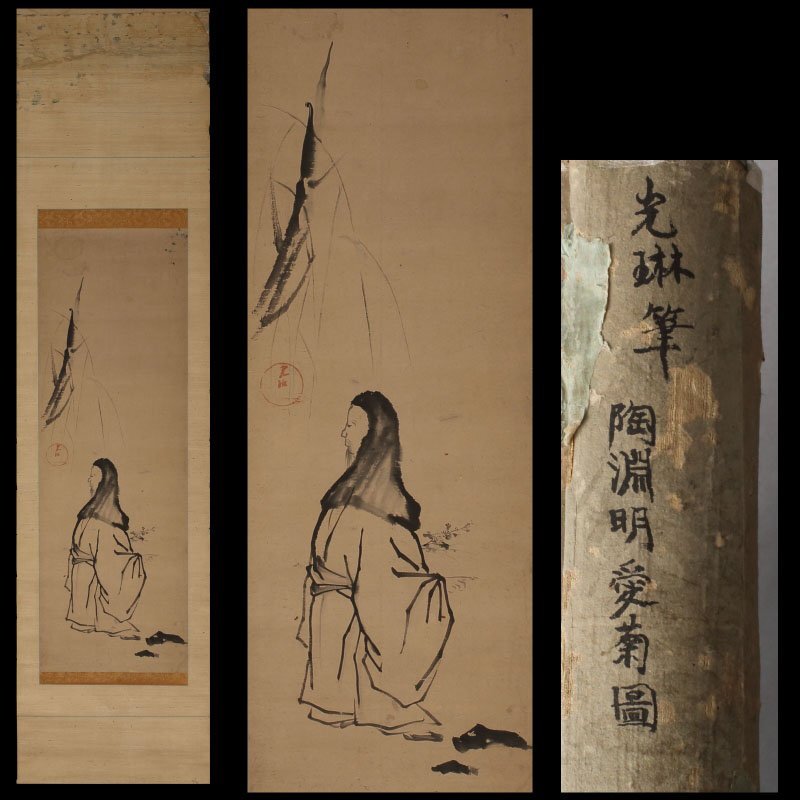 光琳筆
陶淵明愛菊圖